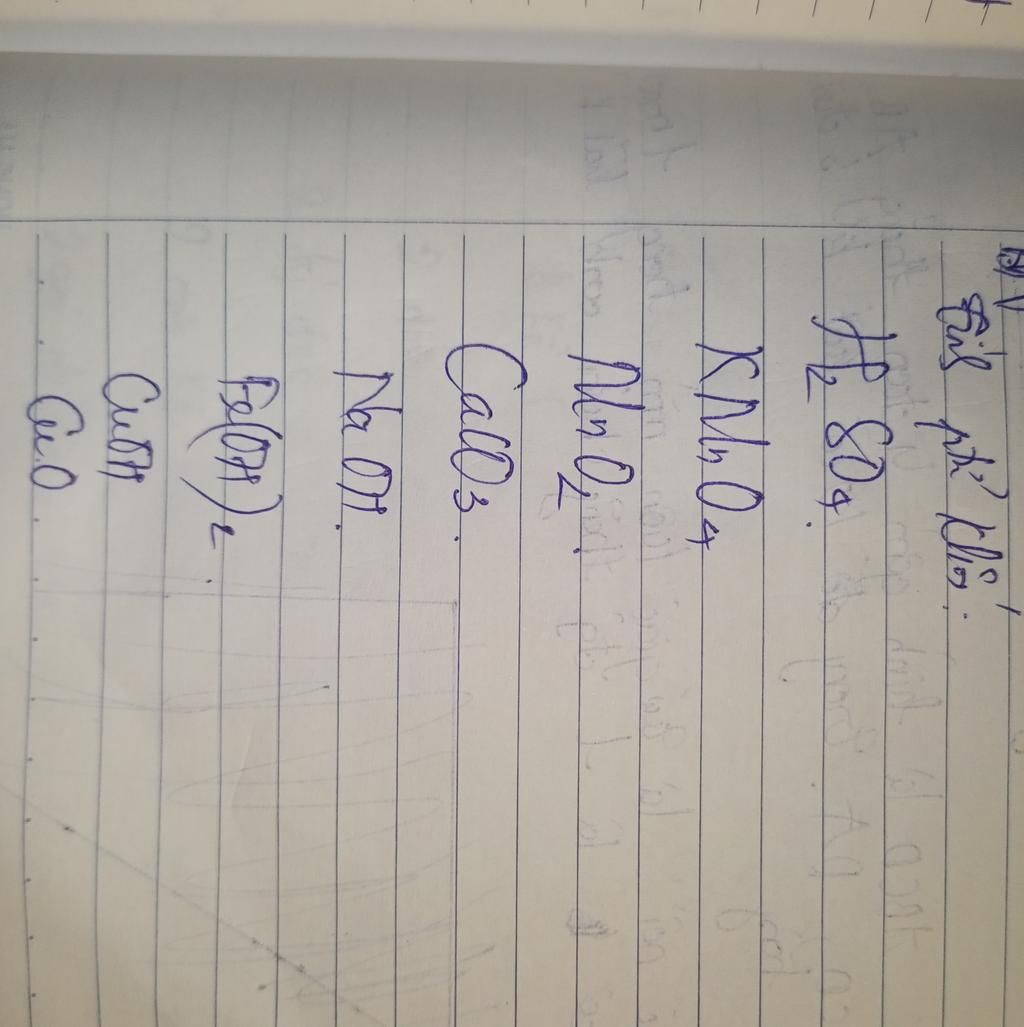 Tính ptử khối:
H2 SO4.
KMnO4
MnO2.
CaCO3.
Na OH.
Fe(OH)2.
CuOH
CuO